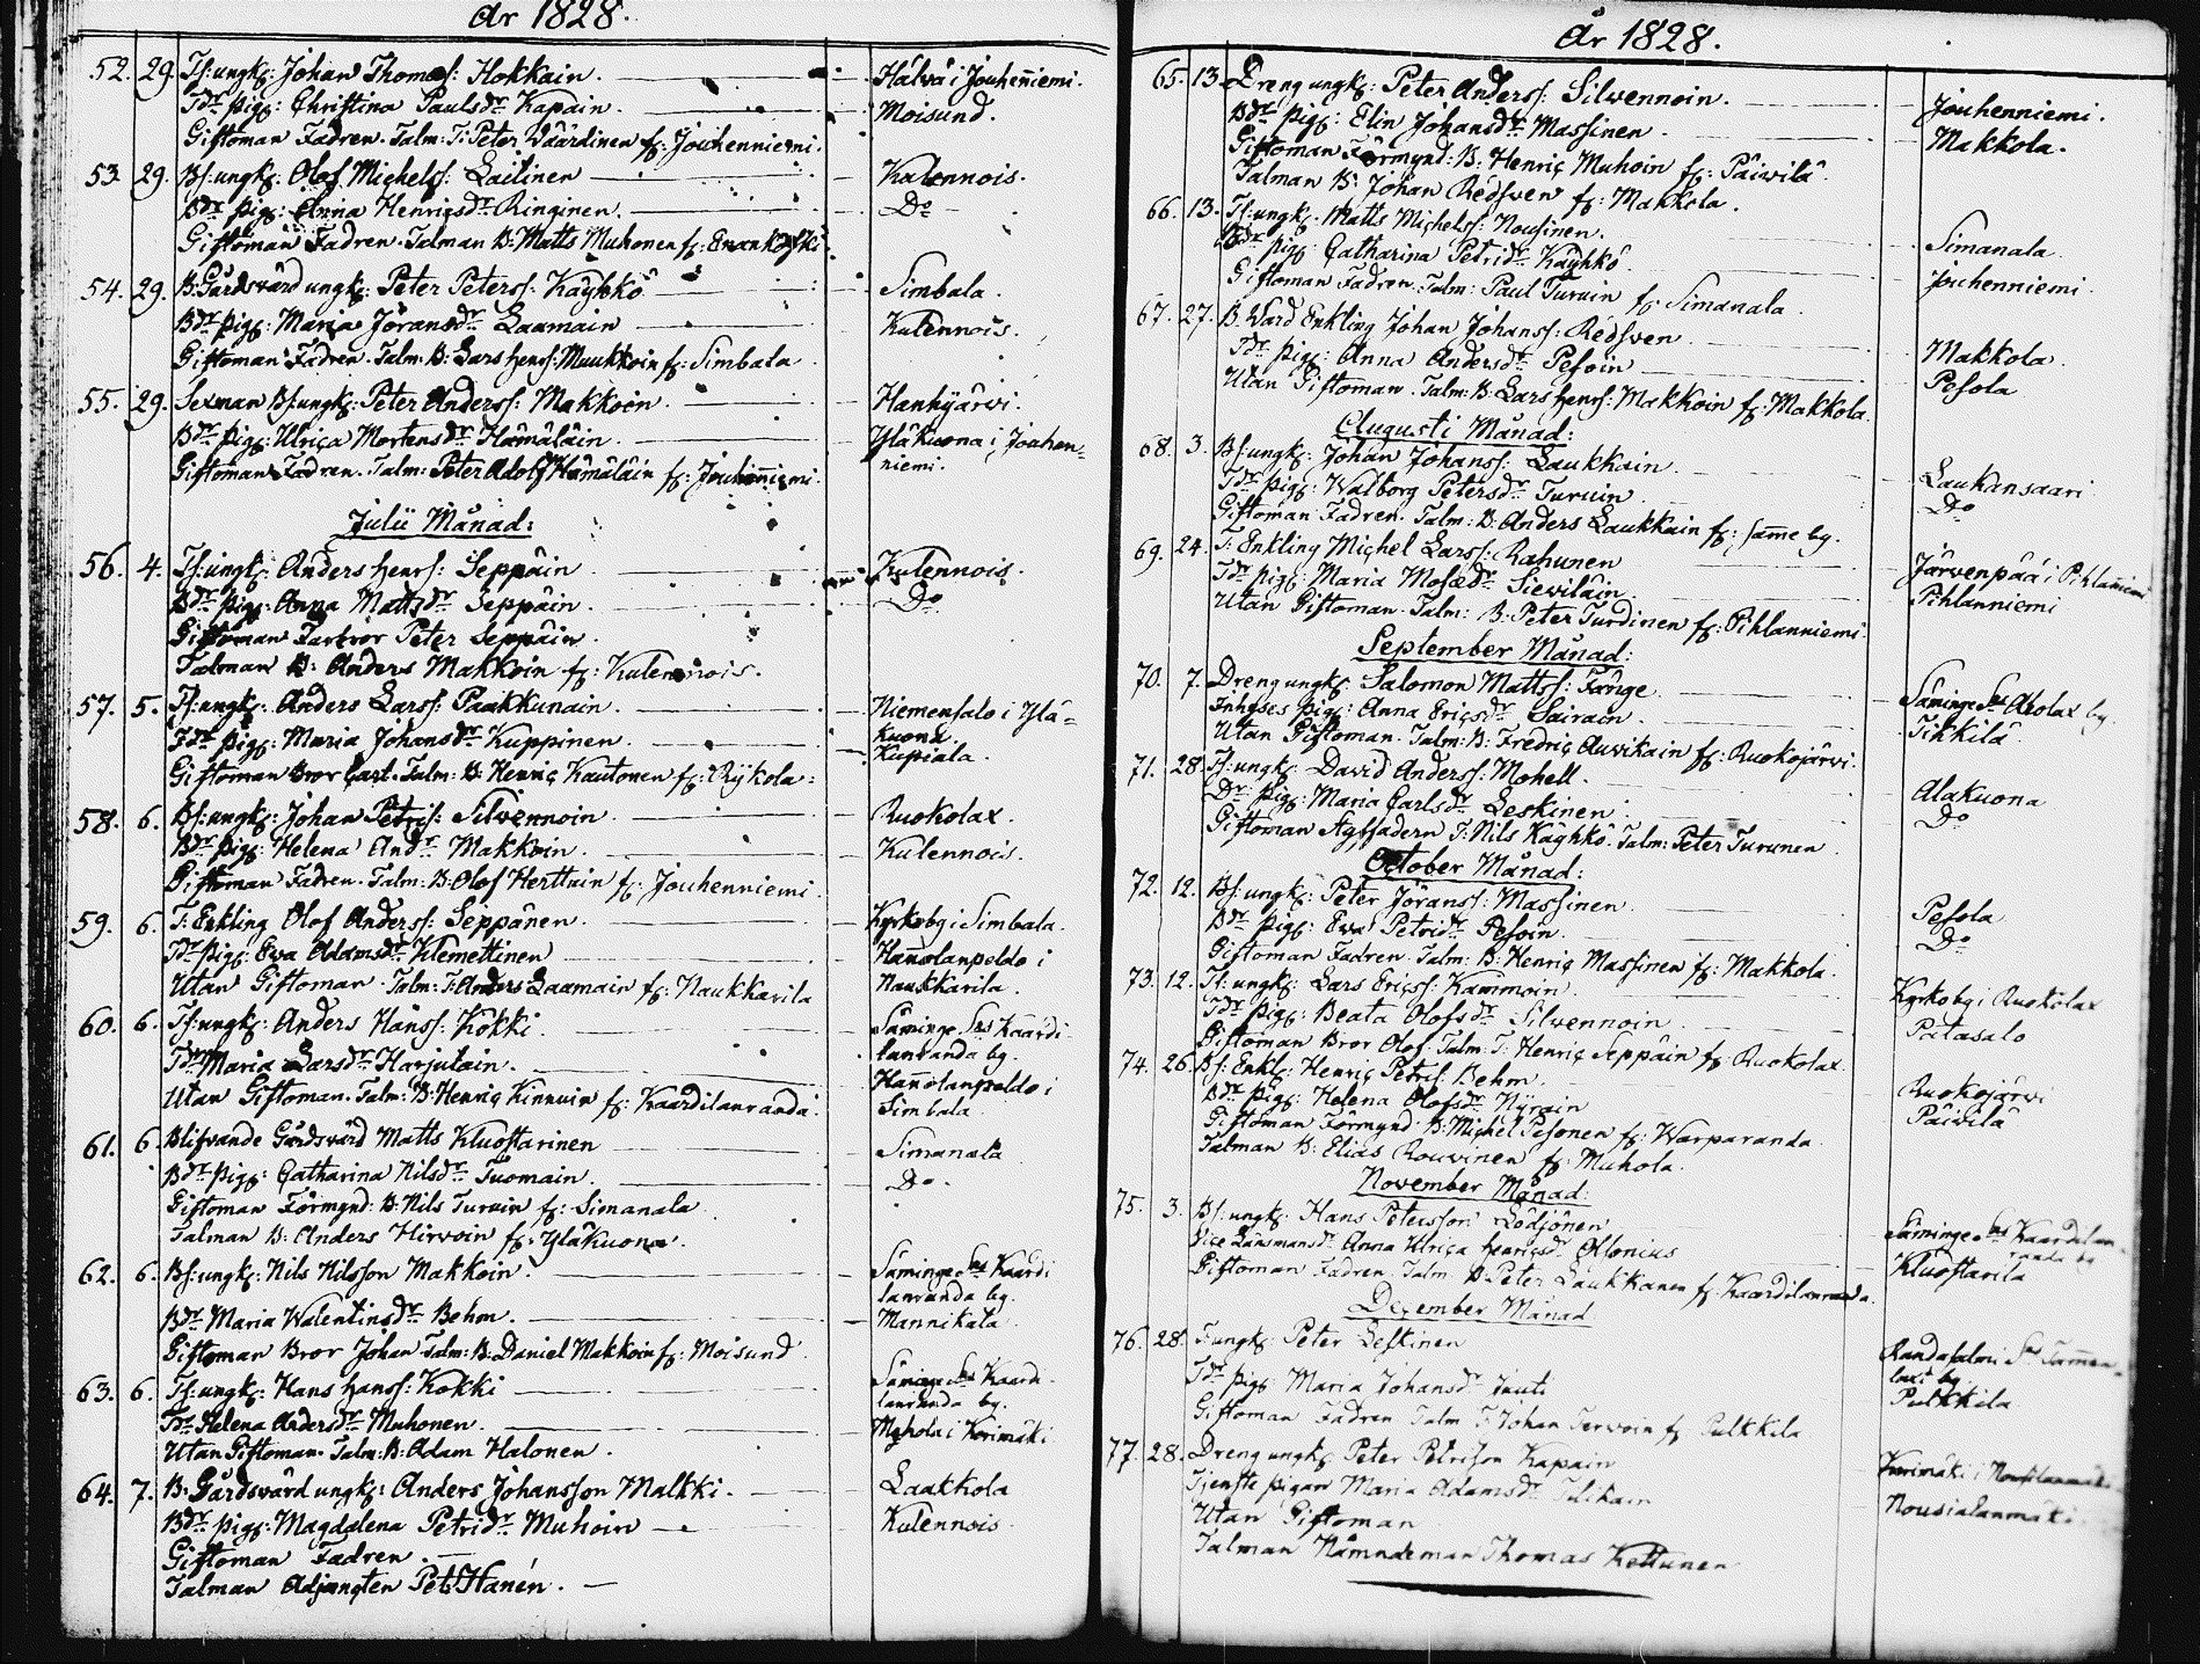 År 1828.
52. 29. Ts: ungk: Johan Thomæs: Hokkain. Hälvä i Jouhenniemi.
Tdr pig: Christina Paulsdr Kapain. Moisund.
Giftoman Fadren. Talm: T: Peter Väärdinen fr: Jouhenniemi.
53. 29. Bs: ungk: Olof Michelss: Laitinen Kulennois.
Bdr pig: Anna Henricsdr Ringinen. Do
Giftoman Fadren. Talman B: Matts Muhonen fr: Enankoski
54. 29. B: Gårdsvärd ungk: Peter Peterss: Käyhkö Simbala.
Bdr pig: Maria Jöransdr Laamain Kulennois.
Giftoman Fadren. Talm: B: Lars Henrs: Muukkoin fr: Simbala
55. 29. Sexman Bs: ungk: Peter Anderss: Makkoin. Hanhijärvi.
Bdr pig: Ulrica Mortensdr Hämäläin. Yläkuona i Jouhen=
niemi.
Giftoman Fadren. Talm: Peter Adolf Hämäläin fr: Jouhenniemi.
Julii Månad:
56. 4. Ts: ungk: Anders Henrs: Seppäin Kulennois.
Bdr pig: Anna Mattsdr Seppäin. Do
Giftoman Farbror Peter Seppäin.
Talman B: Anders Makkoin fr: Kulennois.
57. 5. Ts: ungk: Anders Larss: Paakkunain. Niemensalo i Ylä=
kuona.
Tdr pig: Maria Johansdr Kuppinen. Kupiala.
Giftoman Bror Carl. Talm: B: Henric Kautonen fr: Rykola:
58. 6. Bs: ungk: Johan Petris: Silvennoin Ruokolax.
Bdr pig: Helena Andr Makkoin. Kulennois.
Giftoman Fadren. Talm: B: Olof Herttuin fr: Jouhenniemi.
59. 6. T: Enkling Olof Anderss: Seppänen. Kyrkobg i Simbala.
Tdr pig: Ewa Adamsdr Klemettinen Hannolanpeldo i
Naukkarila.
Utan Giftoman. Talm: T: Anders Laamain fr: Naukkarila
60. 6. Ts: ungk: Anders Hanss: Kokki. Säminge Sn Kaardi
lanranda bg.
Tdr Maria Larsdr Harjutain. Hannolanpeldo i
Simbala.
Utan Giftoman. Talm: B: Henric Kinnuin fr: Kaardilanranda.
61. 6. Blifvande Gårdsvärd Matts Kluostarinen Simanala
Bdr pig: Catharina Nilsdr Tuomain. Do
Giftoman Förmynd: B: Nils Turuin fr: Simanala
Talman B: Anders Hirvoin fr: Yläkuona.
62. 6. Bs: ungk: Nils Nilsson Makkoin. Säminge Sn Kaardi
lanranda bg.
Bdr Maria Walentinsdr Behm. Mannikala
Giftoman Bror Johan Talm: B: Daniel Makkoin fr: Moisund
63. 6. Ts: ungk: Hans Hanss: Kokki Säminge Sn Kaardi
lanranda bg.
Tdr Helena Andersdr Muhonen. Myhola i Kerimäki
Utan Giftoman. Talm: B: Adam Halonen.
64. 7. B: Gårdsvärd ungk: Anders Johansson Malkki. Laakkola
Bdr pig: Magdalena Petridr Muhoin Kulennois
Giftoman Fadren.
Talman Adjungten Pet: Hanén.
År 1828.
65. 13. Dreng ungk: Peter Anderss: Silvennoin. Jouhenniemi.
Bdr pig: Elin Johansdr Massinen Makkola.
Giftoman Förmynd: B: Henric Muhoin fr: Päivilä.
Talman B: Johan Redsven fr: Makkola.
66. 13. Ts: ungk: Matts Michelss: Nousinen. Simanala.
Bdr pig: Catharina Petridr Käyhkö. Jouhenniemi.
Giftoman Fadren. Talm: Paul Turuin fr: Simanala.
67. 27. B. Värd Enkling Johan Johanss: Redsven Makkola.
Tdr pig: Anna Andersdr Pesoin Pesola
Utan Giftoman. Talm: B: Lars Henrs: Makkoin fr: Makkola.
Augusti Månad:
68. 3. Bs: ungk: Johan Johanss: Laukkain. Laukansaari
Tdr pig: Walborg Petersdr Turuin. Do
Giftoman Fadren. Talm: B: Anders Laukkain fr: samme bg.
69. 24. T: Enkling Michel Larss: Rahunen Järvenpää i Pihlanniemi
Tdr pig: Maria Mosædr Sieviläin. Pihlanniemi
Utan Giftoman. Talm: B: Peter Turdinen fr: Pihlanniemi.
September Månad:
70. 7. Dreng ungk: Salomon Mattss: Fånge Säminge Sn Aholax bg.
Inhyses pig: Anna Ericsdr Sairain. Tikkila
Utan Giftoman. Talm: B: Fredric Auvikain fr: Ruokojärvi.
71. 28. Ts: ungk: David Anderss: Mohell. Alakuona
Dr: pig: Maria Carlsdr Leskinen Do
Giftoman Styffadern T: Nils Käyhkö. Talm: Peter Turunen
October Månad:
72. 12. Bs: ungk: Peter Jöranss: Massinen Pesola
Bdr pig: Ewa Petridr Pesoin. Do
Giftoman Fadren. Talm: B: Henric Massinen fr: Makkola.
73. 12. Ts: ungk: Lars Ericss: Kammoin Kyrkobg i Ruokolax
Tdr pig: Beata Olofsdr Silvennoin Patasalo
Giftoman Bror Olof. Talm: T: Henric Seppäin fr: Ruokolax.
74. 26. Bs: Enkl: Henric Petris: Behm. Ruokojärvi
Bdr pig: Helena Olofsdr Nyrain Päivilä
Giftoman Förmynd. B: Michel Pesonen fr: Warparanda.
Talman B: Elias Rouvinen fr: Muhola.
November Månad:
75. 3. Bs: ungk: Hans Petersson Lödjönen Säminge Sn Kaardilan
randa bg
Vice Länsmansdr Anna Ulrica Henricsdr Ollonius Kluostarila
Giftoman Fadren. Talm B: Peter Laukkanen fr: Kaardilanranda.
December Månad
76. 28. T: ungk: Peter Leskinen Randasalmi Sn
laxt bg.
Tdr pig: Maria Johansdr Jauti Pulkkila
Giftoman Fadren Talm T: Johan Tervoin fr Pulkkila
77. 28. Dreng ungk: Peter Petrisson Kapain Kerimäki i
Tjenste pigan Maria Adamsdr Tilikain Nousialanmäki
Utan Giftoman
Talman Nämndeman Thomas Kettunen